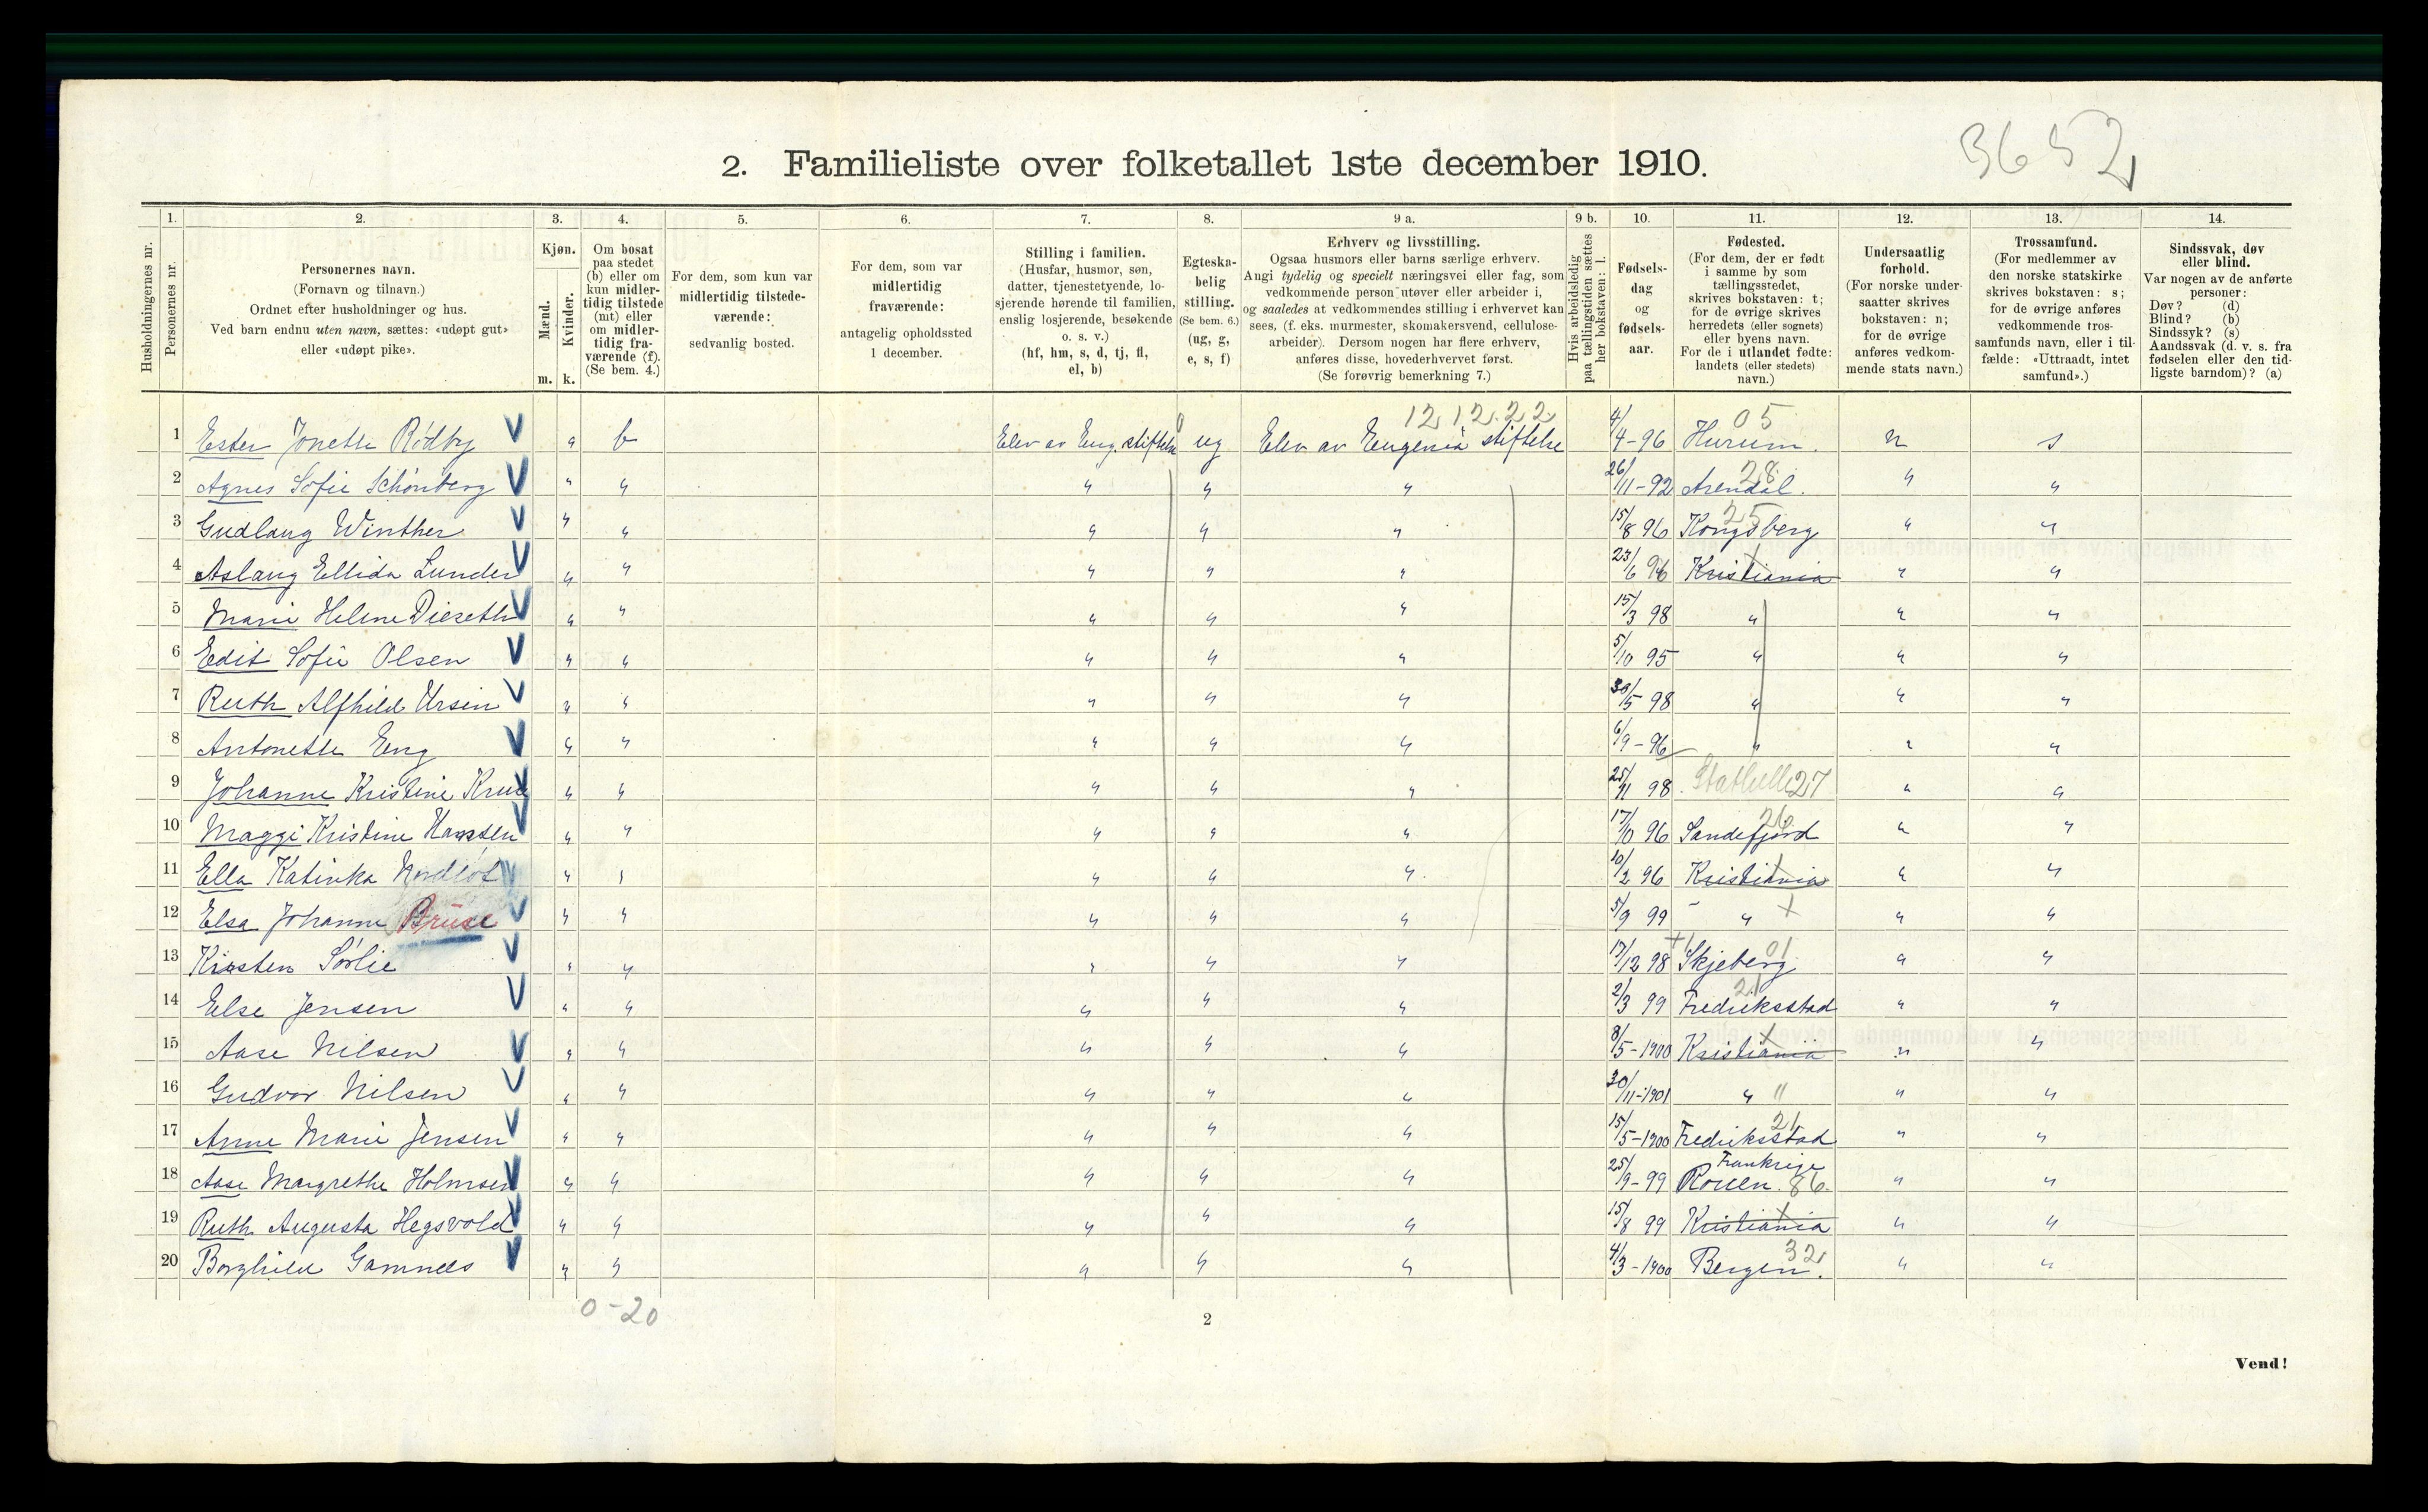 3652
2. Familieliste over folketallet 1ste december 1910.
Husholdningernes nr.
1. Personernes nr.
2. Personernes navn. (Fornavn og tilnavn.) Ordnet efter husholdninger og hus. Ved barn endnu uten navn, sættes: «udøpt gut» eller «udøpt pike».
3. Kjøn. Mænd. m. Kvinder. k.
4. Om bosat paa stedet (b) eller om kun midlertidig tilstede (mt) eller om midlertidig fraværende (f). (Se bem. 4.)
5. For dem, som kun var midlertidig tilstedeværende: sedvanlig bosted.
6. For dem, som var midlertidig fraværende: antagelig opholdssted 1 december.
7. Stilling i familien. (Husfar, husmor, søn, datter, tjenestetyende, losjerende hørende til familien, enslig losjerende, besøkende o. s. v.) (hf, hm, s, d, tj, fl, el, b)
8. Egteskabelig stilling. (Se bem. 6.) (ug, g, e, s, f)
9 a. Erhverv og livsstilling. Ogsaa husmors eller barns særlige erhverv. Angi tydelig og specielt næringsvei eller fag, som vedkommende person utøver eller arbeider i, og saaledes at vedkommendes stilling i erhvervet kan sees, (f. eks. murmester, skomakersvend, cellulosearbeider). Dersom nogen har flere erhverv, anføres disse, hovederhvervet først. (Se forøvrig bemerkning 7.)
9 b. Hvis arbeidsledig paa tællingstiden sættes her bokstaven: l.
10. Fødselsdag og fødselsaar.
11. Fødested. (For dem, der er født i samme by som tællingsstedet, skrives bokstaven: t; for de øvrige skrives herredets (eller sognets) eller byens navn. For de i utlandet fødte: landets (eller stedets) navn.)
12. Undersaatlig forhold. (For norske undersaatter skrives bokstaven: n; for de øvrige anføres vedkommende stats navn.)
13. Trossamfund. (For medlemmer av den norske statskirke skrives bokstaven: s; for de øvrige anføres vedkommende trossamfunds navn, eller i tilfælde: «Uttraadt, intet samfund».)
14. Sindssvak, døv eller blind. Var nogen av de anførte personer: Døv? (d) Blind? (b) Sindssyk? (s) Aandssvak (d. v. s. fra fødselen eller den tidligste barndom)? (a)
12 12.22 05
1 Ester Jonette Rödby V " b Elev av Eug. stiftelse ug Elev av Eugenia stiftelse 4/4-96 Hurum. n s
2 Agnes Sofie Schönberg V " " " " " 26/11-92 Arendal. 28 " "
3 Gudlaug Winther V " " " " " 15/8 96 Kongsberg 25 " "
4 Aslaug Ellida Lunder V " " " " " 23/6 96 Kristiania " "
5 Marie Helene Dieseth V " " " " " 15/3 98 " " "
6 Edit Sofie Olsen V " " " " " 5/10 95 " " "
7 Ruth Alfhild Ursin V " " " " " 30/5 98 " " "
8 Antonette Eng V " " " " " 6/9-96 " " "
9 Johanne Kristine V " " " " " 25/11 98 Stathelle 27 " "
10 Maggi Kristine Hansen V " " " " " 17/10 96 Sandefjord 26 " "
11 Ella Katinka V " " " " " 10/2 96 Kristiania " "
12 Elsa Johanne Bruse V " " " " " 5/9 99 " " "
13 Kirsten Sörlie V " " " " " 17/12 98 Skjeberg 01 " "
14 Else Jensen V " " " " " 2/3 99 Fredriksstad 21 " "
15 Aase Nilsen V " " " " " 8/5-1900 Kristiania " "
16 Gudvor Nilsen V " " " " " 30/11-1901 " " "
17 Anne Marie Jensen V " " " " " 15/5-1900 Fredriksstad 21 " "
18 Aase Margrethe Holmsen V " " " " " 25/9-99 Frankrige Rouen. 86 " "
19 Ruth Augusta Hegsvold V " " " " " 15/8 99 Kristiania " "
20 Borghild Gamnes V " " " " " 4/3-1900 Bergen. 32 " "
0-20
2
Vend!